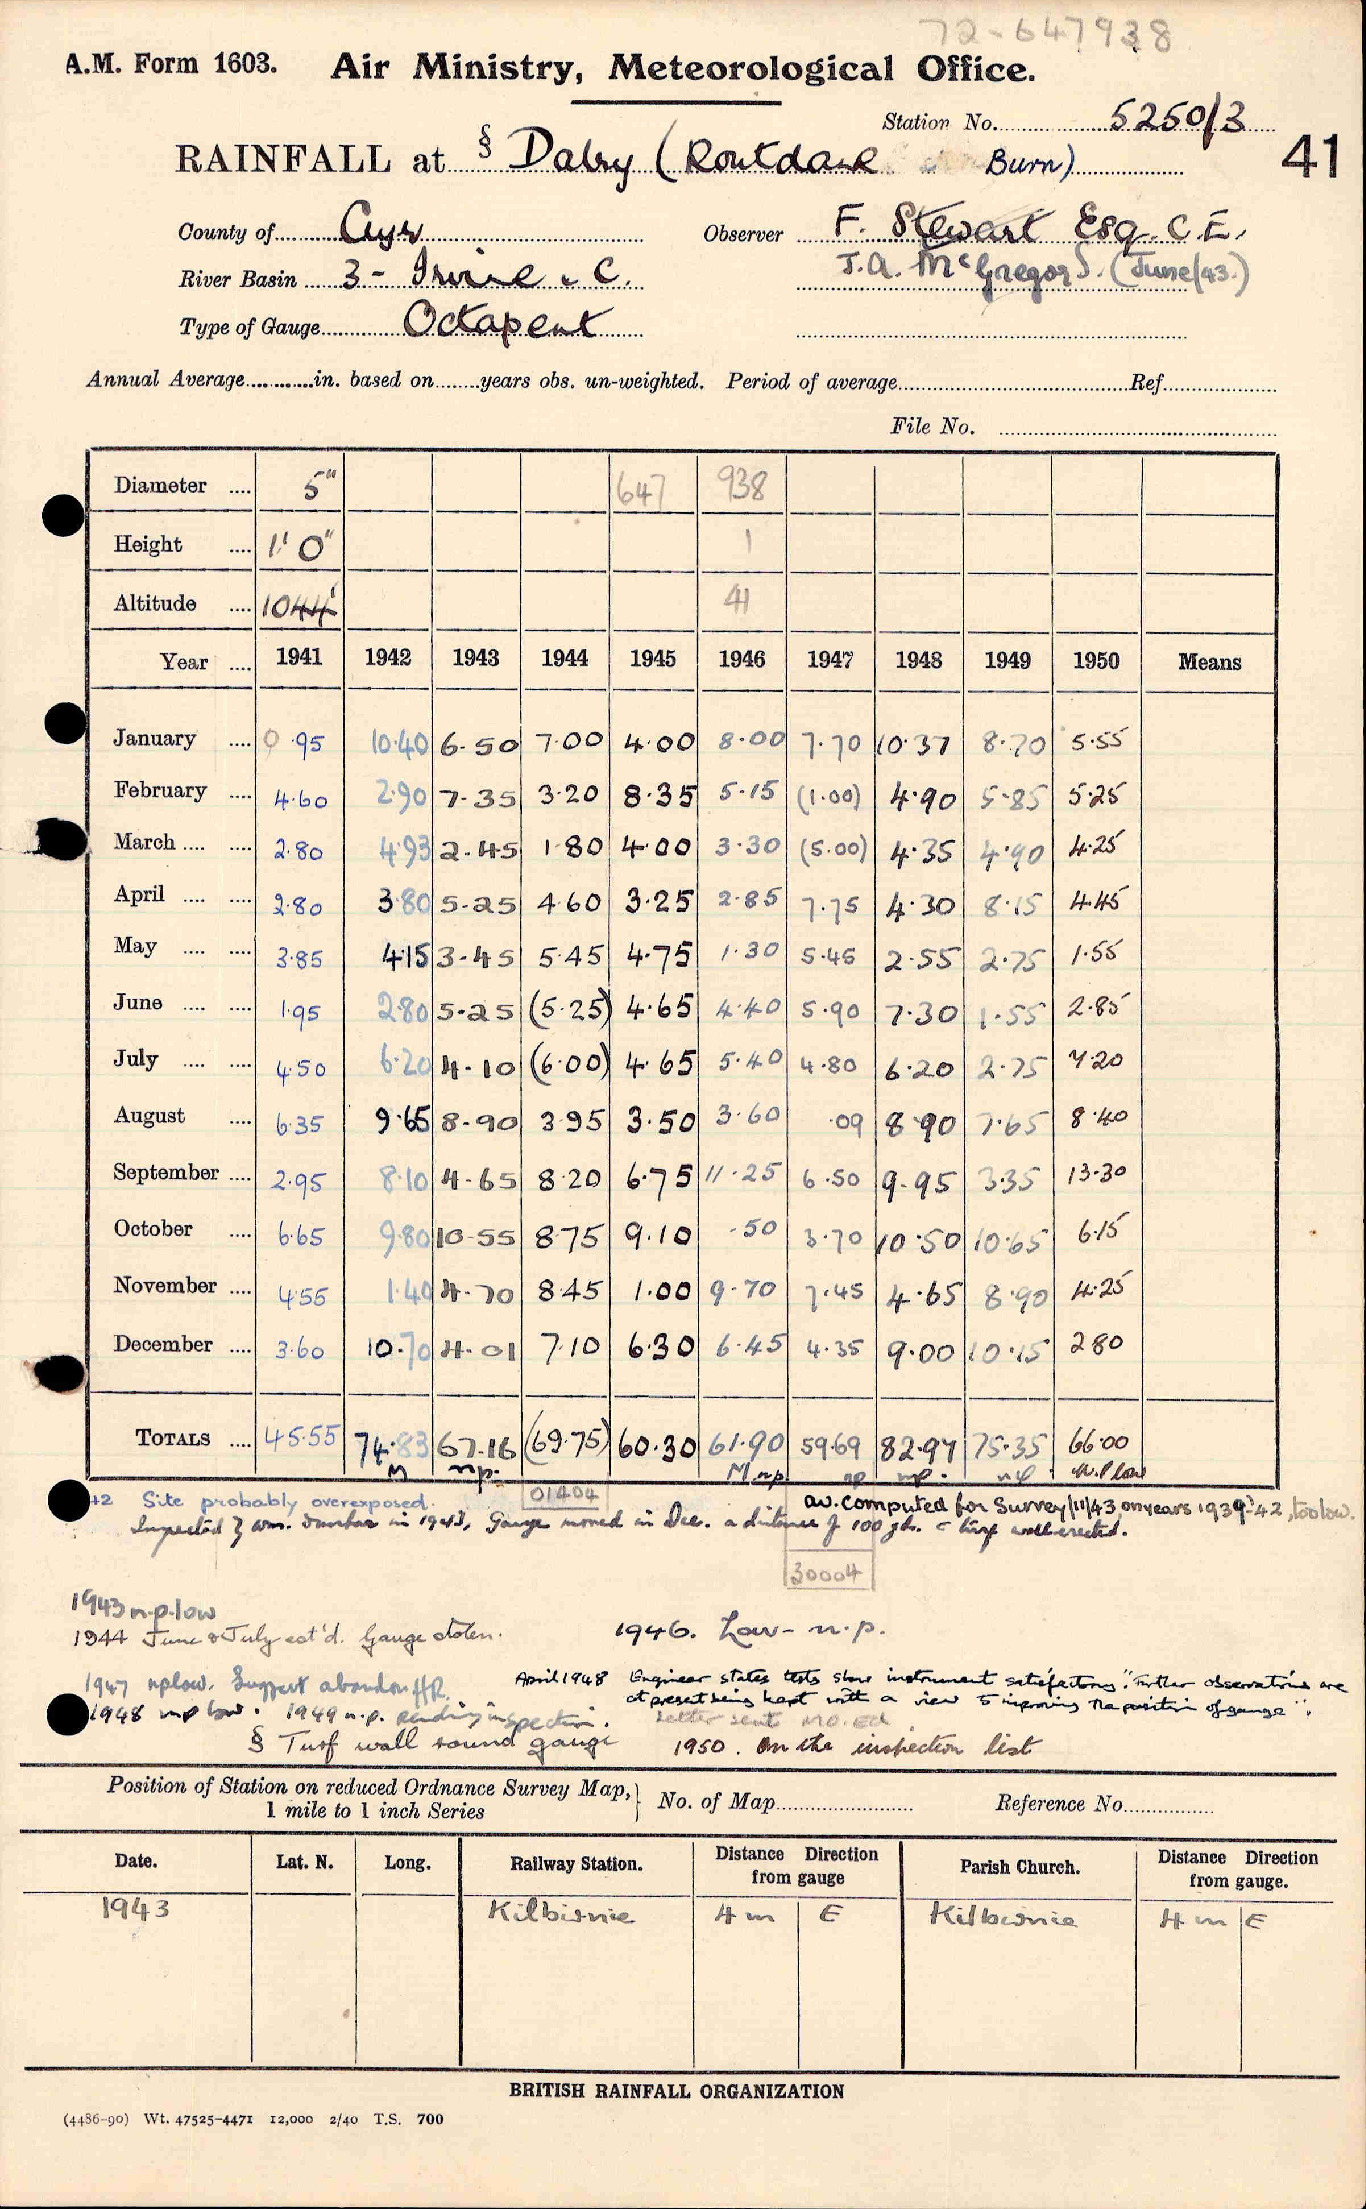 72-647938
A.M. Form 1603. Air Ministry, Meteorological Office.
Station No. 5250/3
41
RAINFALL at § Dalry (Routdane Burn)
County of Ayr Observer F. Stewart Esq. C.E.
River Basin 3 - Irvine &c. J.A. McGregor (June/43.)
Type of Gauge Octapent
Annual Average in. based on years obs. un-weighted. Period of average Ref.
File No.
Diameter 5" 647 938
Height 1' 0" 1
Altitude 1044' 41
Year 1941 1942 1943 1944 1945 1946 1947 1948 1949 1950 Means
January 0.95 10.40 6.50 7.00 4.00 8.00 7.70 10.37 8.70 5.55
February 4.60 2.90 7.35 3.20 8.35 5.15 (1.00) 4.90 5.85 5.25
March 2.80 4.93 2.45 1.80 4.00 3.30 (5.00) 4.35 4.90 4.25
April 2.80 3.80 5.25 4.60 3.25 2.85 7.75 4.30 8.15 4.45
May 3.85 4.15 3.45 5.45 4.75 1.30 5.45 2.55 2.75 1.55
June 1.95 2.80 5.25 (5.25) 4.65 4.40 5.90 7.30 1.55 2.85
July 4.50 6.20 4.10 (6.00) 4.65 5.40 4.80 6.20 2.75 7.20
August 6.35 9.65 8.90 3.95 3.50 3.60 .09 8.90 7.65 8.40
September 2.95 8.10 4.65 8.20 6.75 11.25 6.50 9.95 3.35 13.30
October 6.65 9.80 10.55 8.75 9.10 .50 3.70 10.50 10.65 6.15
November 4.55 1.40 4.70 8.45 1.00 9.70 7.45 4.65 8.90 4.25
December 3.60 10.70 4.01 7.10 6.30 6.45 4.35 9.00 10.15 2.80
TOTALS 45.55 74.83 67.16 (69.75) 60.30 61.90 59.69 82.97 75.35 66.00
M n.p. M n.p. n.p. n.p. n.p. n.p low
01404
42 Site probably overexposed. av. computed for Survey/11/43, on years 1939-42, too low.
Inspected by Wm. Dunbar in 1943, Gauge moved in Dec. a distance of 100 yds. & turf wall erected.
30004
1943 n.p. low
1944 June & July est'd. Gauge stolen. 1946. Low - n.p.
1947 np low. Suggest abandon HR. April 1948 Engineer states tests show instrument satisfactory. "Further observations are
at present being kept with a view to improving the position of gauge".
1948 n p low. 1949 n.p. pending inspection. Letter sent M.O. Ed.
§ Turf wall round gauge 1950. On the inspection list
Position of Station on reduced Ordnance Survey Map, 1 mile to 1 inch Series No. of Map Reference No.
Date. Lat. N. Long. Railway Station. Distance Direction from gauge Parish Church. Distance Direction from gauge.
1943 Kilbirnie 4 m E Kilbirnie 4 m E
BRITISH RAINFALL ORGANIZATION
(4486-90) Wt. 47525-4471 12,000 2/40 T.S. 700